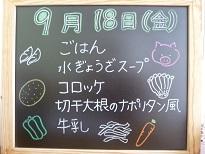 9月18日(金)
ごはん
水ぎょうざスープ
コロッケ
切干大根のナポリタン風
牛乳